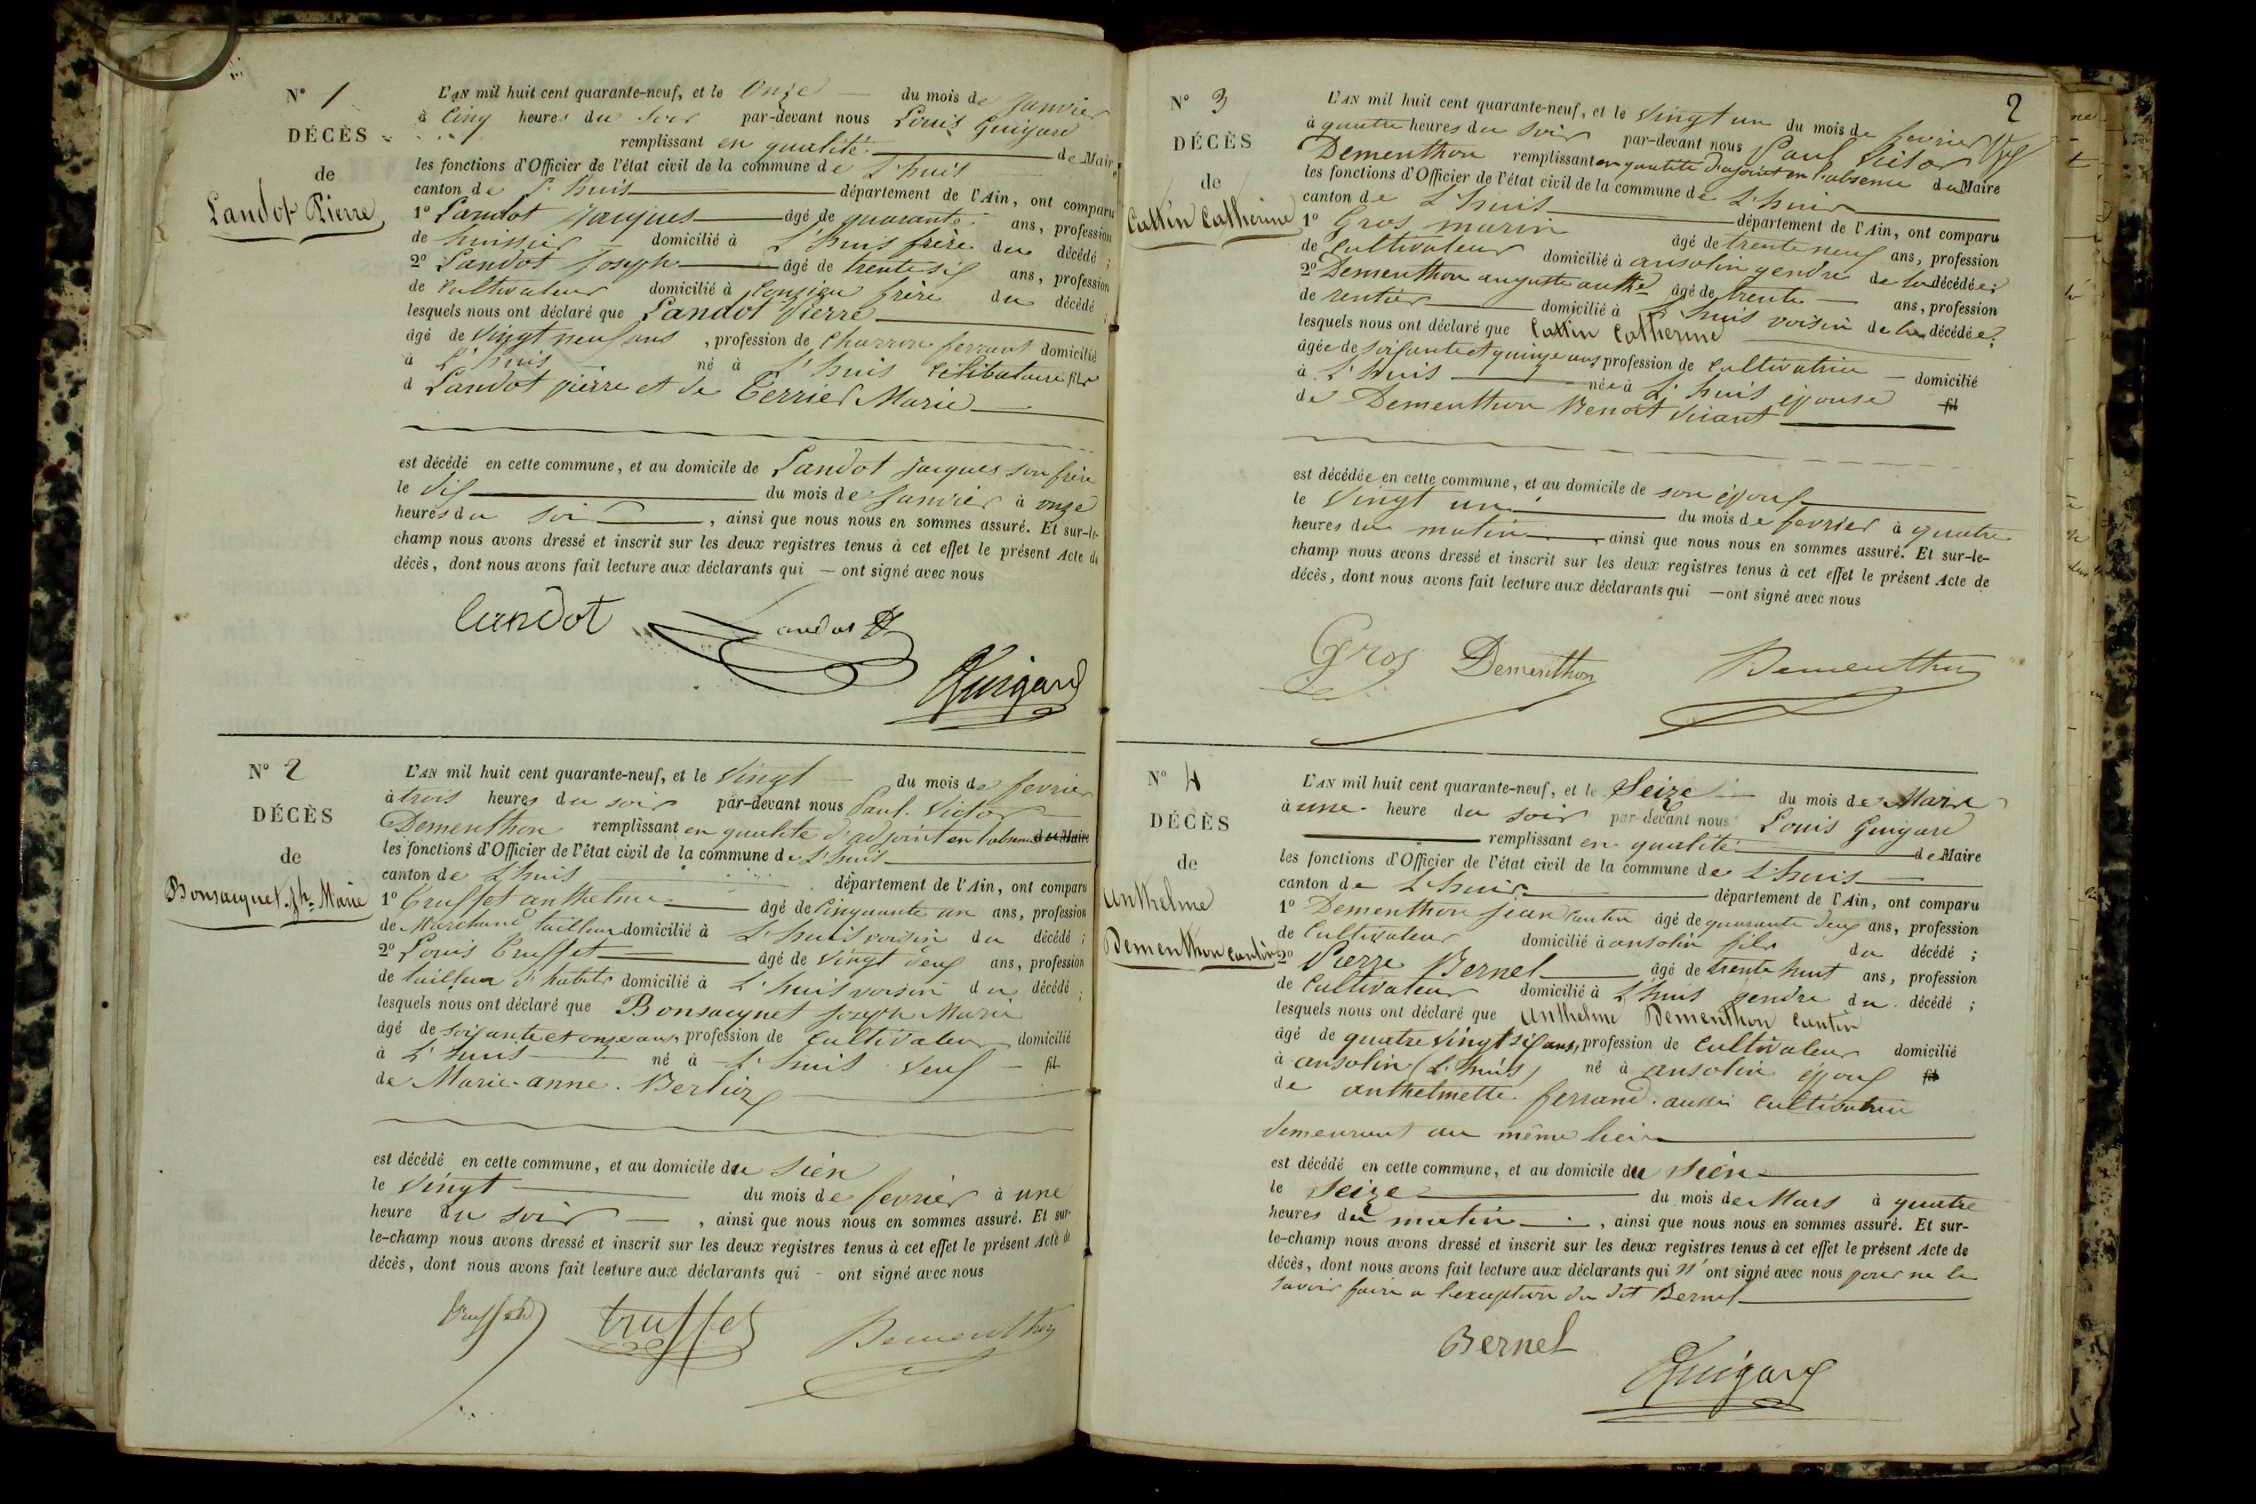 N° 1
DÉCÈS
de
Landot Pierre
L'AN mil huit cent quarante-neuf, et le Onze du mois de Janvier
à Cinq heures du soir par-devant nous Louis Guigard
remplissant en qualité de Maire
les fonctions d'Officier de l'état civil de la commune de L'huis
canton de L'huis département de l'Ain, ont comparu
1° Landot Jacques âgé de quarante ans, profession
de huissier domicilié à L'huis frère du décédé ;
2° Landot Joseph âgé de trente six ans, profession
de cultivateur domicilié à frère du décédé ;
lesquels nous ont déclaré que Landot Pierre
âgé de vingt neuf ans, profession de charron ferrant domicilié
à L'huis né à L'huis célibataire fils
d Landot pierre et de Terrier Marie
est décédé en cette commune, et au domicile de Landot Jacques son frère
le dix du mois de Janvier à onze
heures du soir, ainsi que nous nous en sommes assuré. Et sur-le-
champ nous avons dressé et inscrit sur les deux registres tenus à cet effet le présent Acte de
décès, dont nous avons fait lecture aux déclarants qui — ont signé avec nous
Landot Landot
Guigard
N° 2
DÉCÈS
de
Bonsacquet Jh Marie
L'AN mil huit cent quarante-neuf, et le Vingt du mois de fevrier
à trois heures du soir par-devant nous Paul Victor
Dementhon remplissant en qualité d'adjoint en l'absence du Maire
les fonctions d'Officier de l'état civil de la commune de L'huis
canton de L'huis département de l'Ain, ont comparu
1° Truffet anthelme âgé de cinquante un ans, profession
de Marchand tailleur domicilié à L'huis voisin du décédé ;
2° Louis Truffet âgé de vingt deux ans, profession
de tailleur d'habits domicilié à L'huis voisin du décédé ;
lesquels nous ont déclaré que Bonsacquet Joseph Marie
âgé de soixante et onze ans, profession de cultivateur domicilié
à L'huis né à L'huis veuf fil
de Marie-anne Berlioz
est décédé en cette commune, et au domicile du sien
le vingt du mois de fevrier à une
heure du soir, ainsi que nous nous en sommes assuré. Et sur-
le-champ nous avons dressé et inscrit sur les deux registres tenus à cet effet le présent Acte de
décès, dont nous avons fait lecture aux déclarants qui - ont signé avec nous
Truffet truffet Dementhon
2
N° 3
DÉCÈS
de
Cattin Catherine
L'AN mil huit cent quarante-neuf, et le vingt un du mois de fevrier
à quatre heures du soir par-devant nous Paul Victor
Dementhon remplissant en qualité d'adjoint en l'absence du Maire
les fonctions d'Officier de l'état civil de la commune de L'huis
canton de L'huis département de l'Ain, ont comparu
1° Gros marin âgé de trente neuf ans, profession
de cultivateur domicilié à ansolin gendre de la décédée ;
2° Dementhon auguste anthe âgé de trente ans, profession
de rentier domicilié à L'huis voisin de la décédée ;
lesquels nous ont déclaré que Cattin Catherine
âgée de soixante et quinze ans profession de cultivatrice domicilié
à L'huis née à L'huis épouse fil
de Dementhon Benoit vivant
est décédée en cette commune, et au domicile de son époux
le vingt un du mois de fevrier à quatre
heures du matin, ainsi que nous nous en sommes assuré. Et sur-le-
champ nous avons dressé et inscrit sur les deux registres tenus à cet effet le présent Acte de
décès, dont nous avons fait lecture aux déclarants qui — ont signé avec nous
Gros Dementhon Dementhon
N° 4
DÉCÈS
de
Anthelme
Dementhon cantin
L'AN mil huit cent quarante-neuf, et le Seize du mois de Mars
à une heure du soir par-devant nous Louis Guigard
remplissant en qualité de Maire
les fonctions d'Officier de l'état civil de la commune de L'huis
canton de L'huis département de l'Ain, ont comparu
1° Dementhon jean cantin âgé de quarante deux ans, profession
de cultivateur domicilié à ansolin fils du décédé ;
2° Pierre Bernel âgé de trente huit ans, profession
de cultivateur domicilié à L'huis gendre du décédé ;
lesquels nous ont déclaré que Anthelme Dementhon cantin
âgé de quatre vingt six ans, profession de cultivateur domicilié
à ansolin (L'huis) né à ansolin époux fil
de anthelmette ferrand aussi cultivatrice
demeurant au même lieu
est décédé en cette commune, et au domicile du sien
le seize du mois de Mars à quatre
heures du matin, ainsi que nous nous en sommes assuré. Et sur-
le-champ nous avons dressé et inscrit sur les deux registres tenus à cet effet le présent Acte de
décès, dont nous avons fait lecture aux déclarants qui n'ont signé avec nous pour ne le
savoir faire a l'exception du dit Bernel
Bernel
Guigard